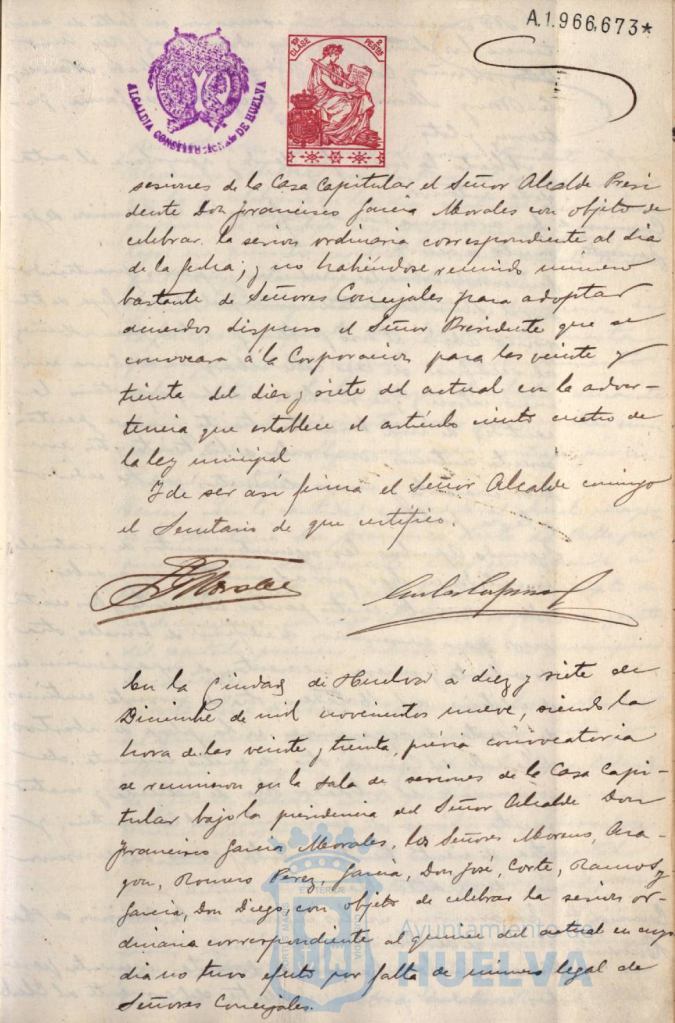 A.1.966,673*
ALCALDIA CONSTITUCIONAL DE HUELVA
CLASE
PESTAS
sesiones de la Casa Capitular el Señor Alcalde Presi
dente Don Francisco Garcia Morales con objeto de
celebrar la sesion ordinaria correspondiente al dia
de la fecha; y no habiéndose reunido número
bastante de Señores Concejales para adoptar
acuerdos dispuso el Señor Presidente que se
convocara á la Corporacion para las veinte y
treinta del diez y siete del actual con la adver-
tencia que establece el artículo ciento cuatro de
la ley municipal
Y de ser así firma el Señor Alcalde conmigo
el Secretario de que certifico.
En la Ciudad de Huelva á diez y siete de
Diciembre de mil novecientos nueve, siendo la
hora de las veinte y treinta, prévia convocatoria
se reunieron en la sala de sesiones de la Casa Capi-
tular bajo la presidencia del Señor Alcalde Don
Francisco Garcia Morales, los Señores Moreno, Ara-
gon, Romero Perez, Garcia, Don José, Corte, Ramos y
Garcia, Don Diego, con objeto de celebrar la sesion or-
dinaria correspondiente al quince del actual en cuyo
dia no tuvo efecto por falta de número legal de
Señores Concejales.
Ayuntamiento de
HUELVA